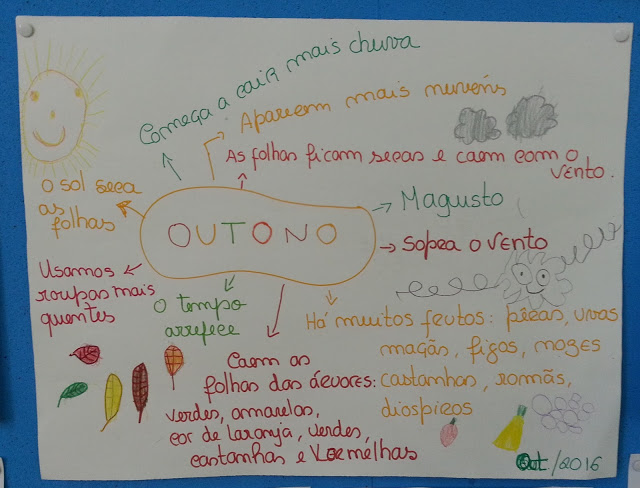 Começa a cair mais chuva
Aparecem mais nuvens
As folhas ficam secas e caem com o
vento.
O sol seca
as
folhas
OUTONO
Magusto
Sopra o vento
Usamos
roupas mais
quentes
O tempo
arrefece
Há muitos frutos: pêras, uvas
maçãs, figos, nozes
castanhas, romãs,
diospiros
Caem as
folhas das árvores:
verdes, amarelas,
cor de laranja, verdes,
castanhas e vermelhas
Out/2016